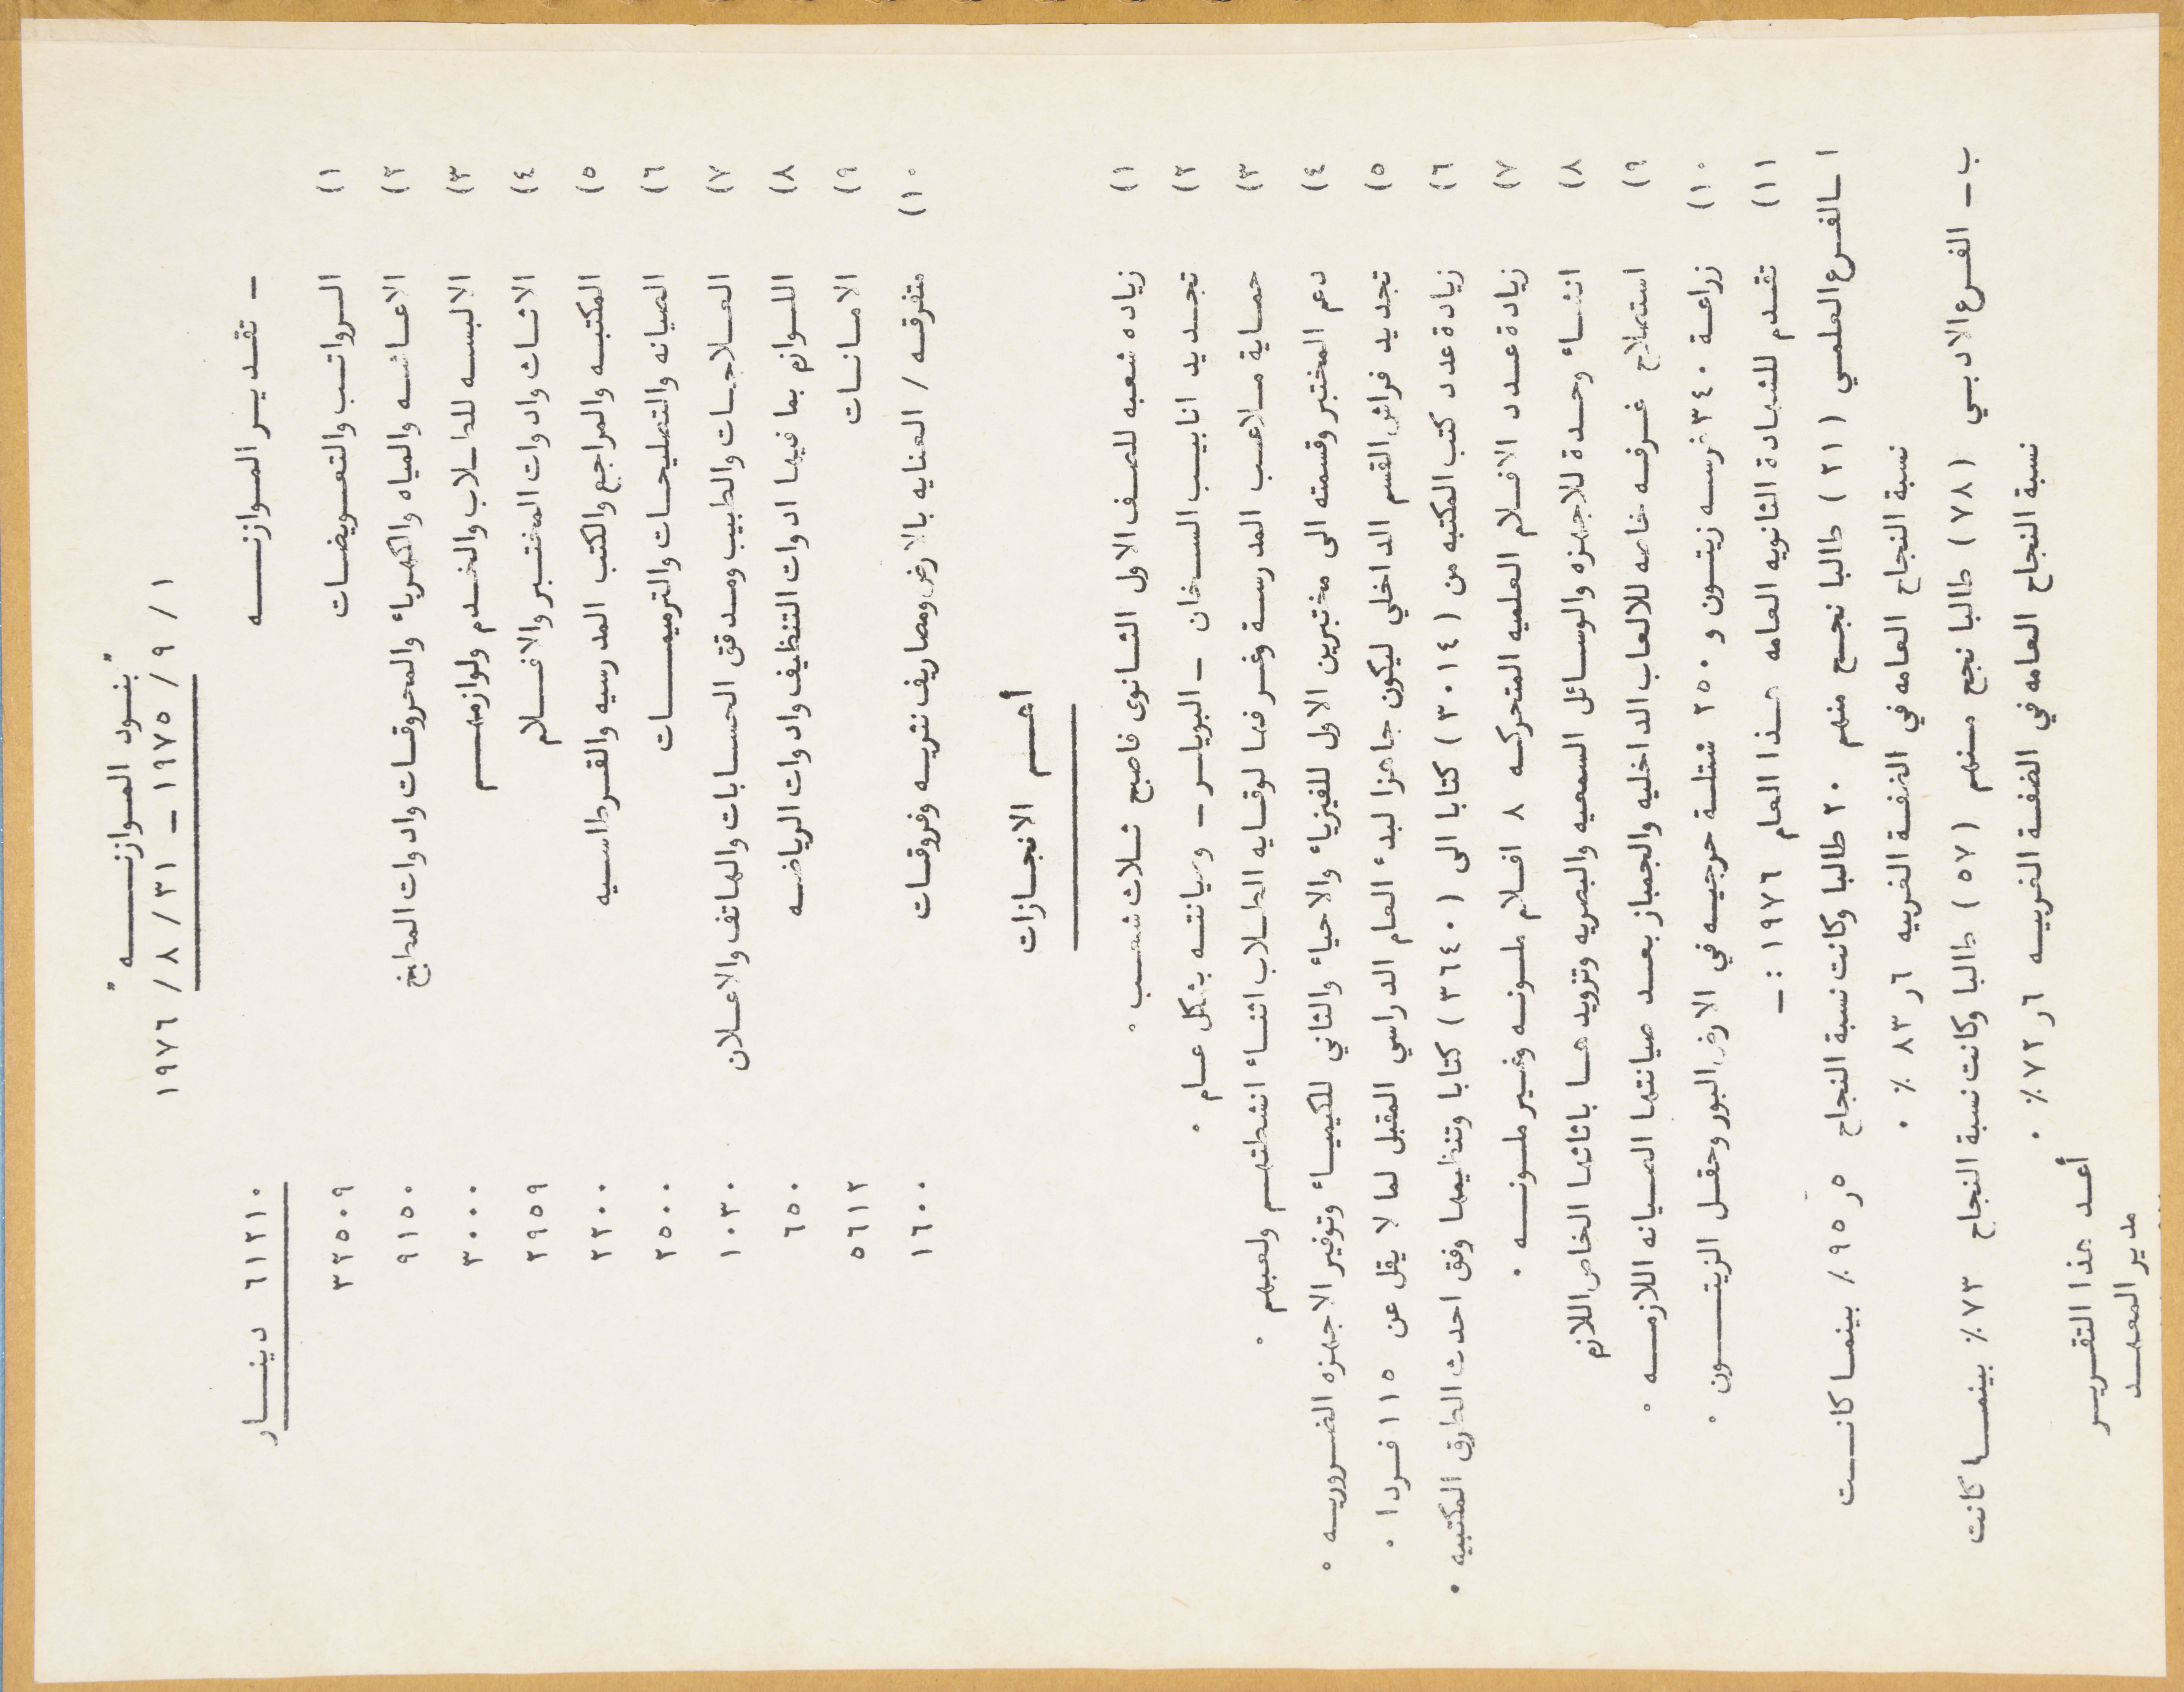 " بنـود المـوازنـــــه "
١ / ٩ / ١٩٧٥ ــ ٣١ / ٨ / ١٩٧٦
ــ تقـديـر المـوازنــــه ٦١٢١٠ دينــــار
١) الـرواتـب والتعـويضـات ٣٢٥٠٩
٢) الاعـاشـه والمياه والكهـرباء والمحروقـات وادوات المطبخ ٩١٥٠
٣) الالبسـه للطـلاب والخـدم ولوازمهـــم ٣٠٠٠
٤) الاثـاث وادوات المختـبر والافــلام ٢٩٥٩
٥) المكتبـه والمراجع والكتب المدرسيه والقـرطاسـيه ٢٢٠٠
٦) الصيانه والتصليحـات والترميمــــات ٢٥٠٠
٧) العـلاجـات والطبيب ومـدقق الحسـابات والهـاتف والاعـلان ١٠٣٠
٨) اللـوازم بما فيها ادوات التنظيف وادوات الرياضـه ٦٥٠
٩) الامـانـات ٥٦١٢
١٠) متفرقـه / العنايه بالارض ومصاريف نثريـه وفروقـات ١٦٠٠
أهـــم الانجـازات
١) زياده شعبه للصـف الاول الثـانوى فاصبح ثـلاث شعـب ٠
٢) تجـديد انابيـب السـخان ــ البويلـر ــ وصيانتـه بشكل عـام ٠
٣) حمـاية مـلاعـب المدرسـة وغـرفهـا لوقـايه الطـلاب اثنـاء انشطتهـم ولعبهم ٠
٤) دعم المختبر وقسمته الى مختبرين الاول للفيزياء والاحياء والثاني للكيميـاء وتوفير الاجهـزه الضـروريـه ٠
٥) تجديد فراش القسم الداخلي ليكون جاهزا لبدء العام الدراسي المقبل لما لا يقل عن ١١٥ فـردا ٠
٦) زيادة عدد كتب المكتبه من (٣٠١٤) كتابا الى (٣٦٤٠) كتابا وتنظيمها وفق احدث الطرق المكتبيه ٠
٧) زيـادة عـدد الافـلام العلميه المتحركـه ٨ افـلام ملـونـه وغـير ملـونــه ٠
٨) انشـاء وحـدة للاجهـزه والوسـائل السمعيه والبصريه وتزويدهـا باثاثهـا الخاص اللازم
٩) استصلاح غـرفـه خاصه للالعاب الداخليه والجمباز بعـد صيانتهـا الصـيانه اللازمــه ٠
١٠) زراعـة ٣٤٠ غرسـه زيتـون و ٢٥٠ شتلـة حرجيـه في الارض البور وحقـل الزيتــــون ٠
١١) تقـدم للشهـادة الثانويه العـامه هـذا العـام ١٩٧٦ :ــ
ا ــ الفـرع العلمـي (٢١) طالبا نجـح منهم ٢٠ طالبا وكانت نسبة النجاح ٥ر٩٥٪ بينمـا كانـــت
نسبة النجاح العامه في الضفـة الغربيه ٦ر٨٣ ٪ ٠
ب ــ الفـرع الادبـي (٧٨) طالبـا نجح مـنهم (٥٧) طالبـا وكانت نسبة النجاح ٧٣٪ بينمــا كانت
نسبة النجاح العامه في الضفـة الغربيـه ٦ر٧٢٪ ٠
أعـد هذا التقريـر
مدير المعهــد